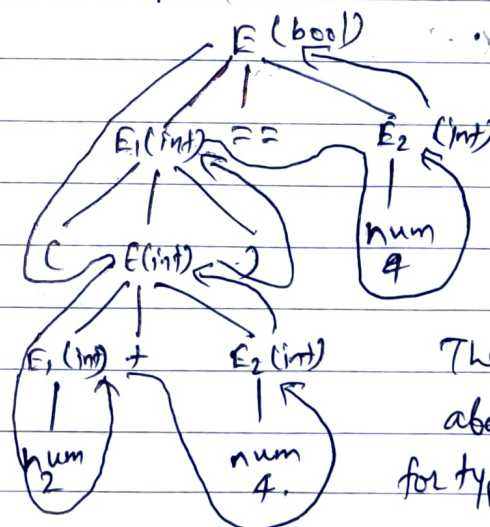 E (bool)
E₁ (int) == E₂ (int)
num
4
( E(int) )
E₁ (int) + E₂ (int)
num num
2 4.
for